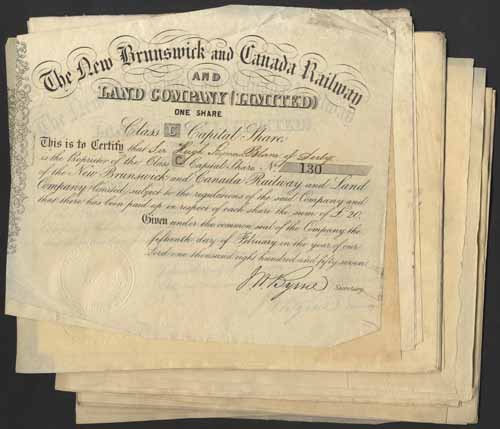 The New Brunswick and Canada Railway
AND
LAND COMPANY (LIMITED)
ONE SHARE
Class C Capital Share.
This is to Certify that Sir Hugh
is the Proprietor of the Class C Capital Share No. 130
of the New Brunswick and Canada Railway and Land
Company limited, subject to the regulations of the said Company and
that there has been paid up in respect of each share the sum of £20.
Given under the common seal of the Company the
fifteenth day of February in the year of our
Lord one thousand eight hundred and fifty seven
J W Byrne Secretary